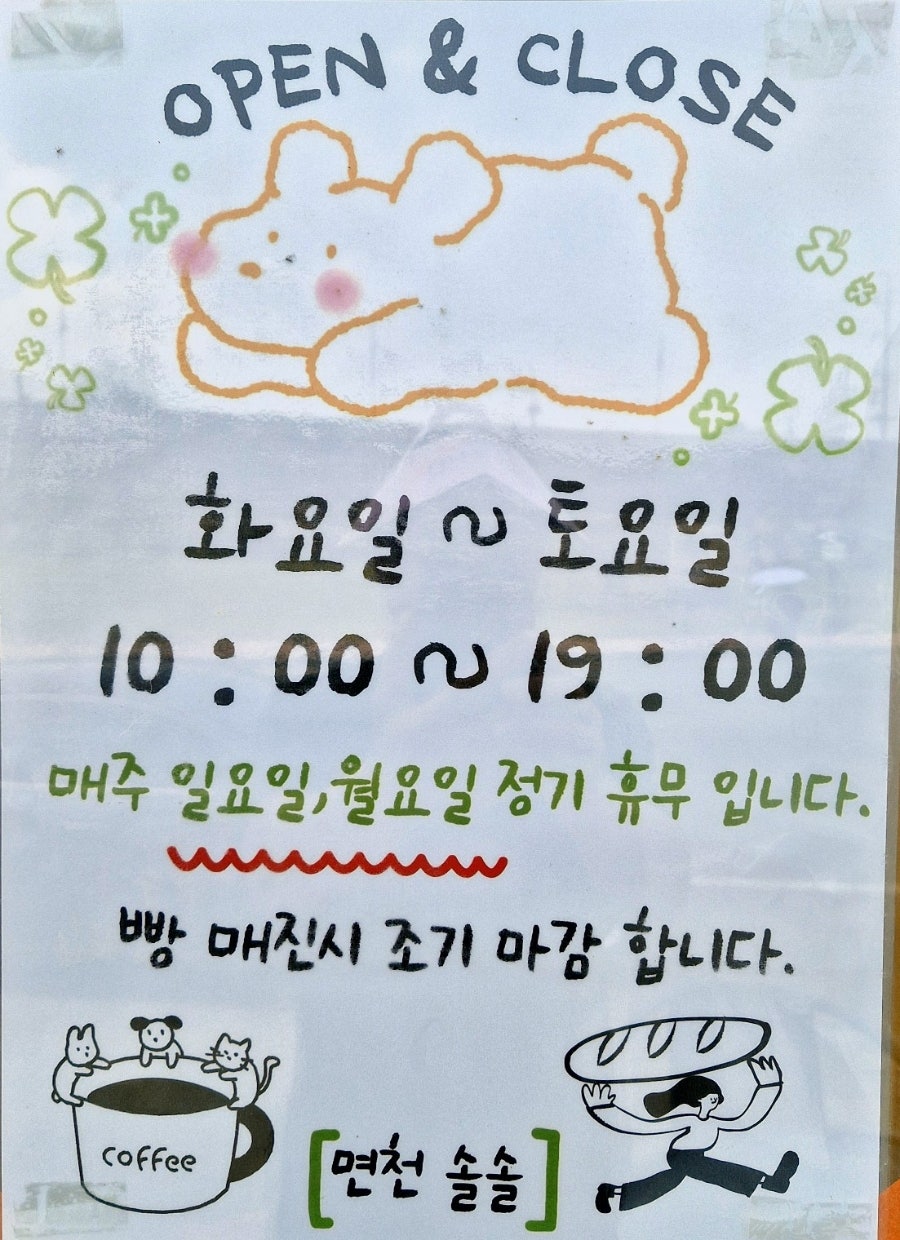 OPEN & CLOSE
화요일 ~ 토요일
10:00 ~ 19:00
매주 일요일,월요일 정기 휴무 입니다.
빵 매진시 조기 마감 합니다.
coffee
[면천 솔솔]